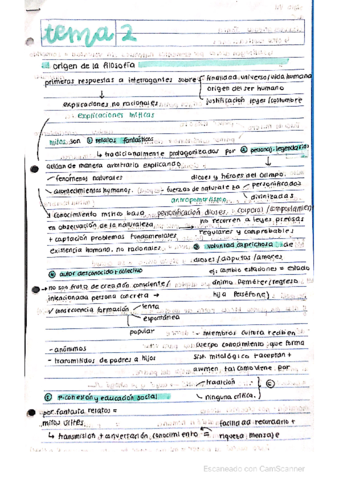 tema 2
origen de la filosofía
primeras respuestas a interrogantes sobre finalidad universo/vida humana
origen del ser humano
explicaciones no racionales justificación leyes/costumbre
explicaciones míticas
mitos son relatos fantásticos
tradicionalmente protagonizados por personaj. legendarios
actúan de manera arbitraria explicando
fenómenos naturales dioses y héroes del tiempo
acontecimientos humanos. fuerzas de naturaleza personificadas
antropomorfismo divinizadas
conocimiento mítico bajo personificación dioses
es observación de la naturaleza no recurren a leyes precisas
+ captación problemas fundamentales regulares y comprobables
existencia humana. no racionales voluntad caprichosa de
dioses/disputas/amores
autor desconocido + colectivo ej: cambio estaciones = estado
no son fruto de creación consciente/ ánimo Deméter/regreso
intencionada persona concreta → hija Perséfone
consecuencia formación lenta
espontánea
popular miembros cultura reciben
- anónimos cuerpo conocimiento que forma
- transmitidos de padres a hijos sist. mitológico + aceptan +
asumen, tal como viene por
tradición
+ cohesión y educación social ninguna crítica.
por fantasía relatos =
mitos útiles facilidad recuerdo +
transmisión + conversación conocimiento = riqueza mensaje
Escaneado con CamScanner